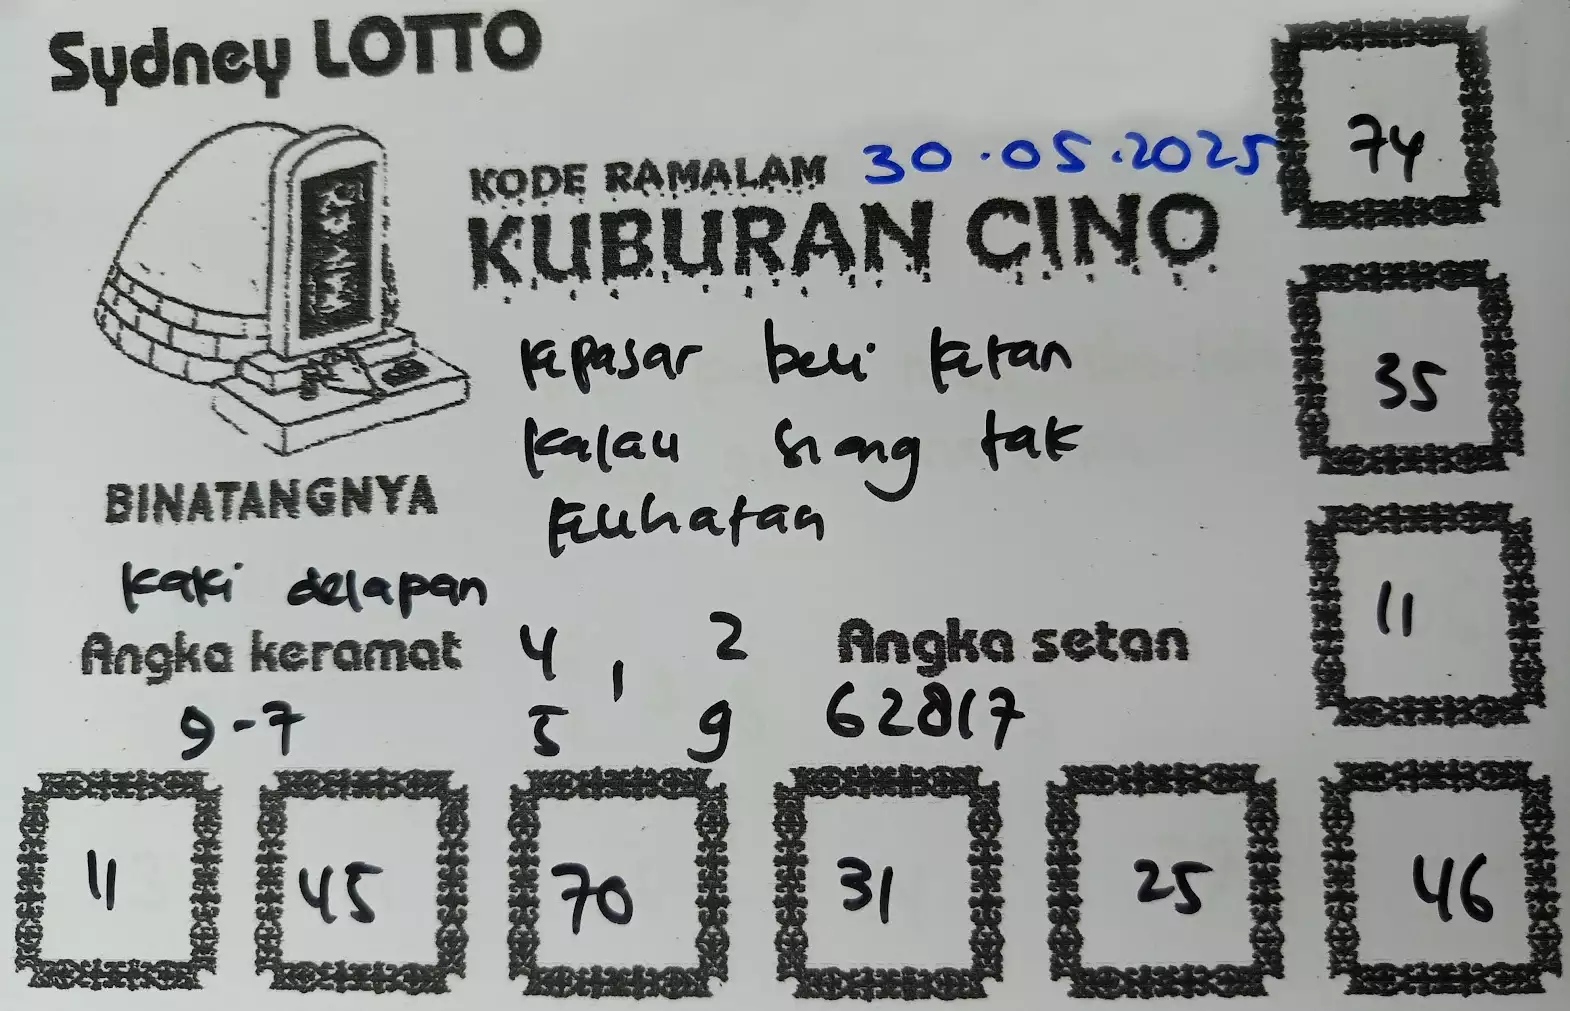 Sydney LOTTO
KODE RAMALAM 30.05.2025
KUBURAN CINO
kepasar beli ketan
kalau siang tak
kelihatan
BINATANGNYA
kaki delapan
Angka keramat
9-7
4 , 2
5 9
Angka setan
62817
74
35
11
11
45
70
31
25
46